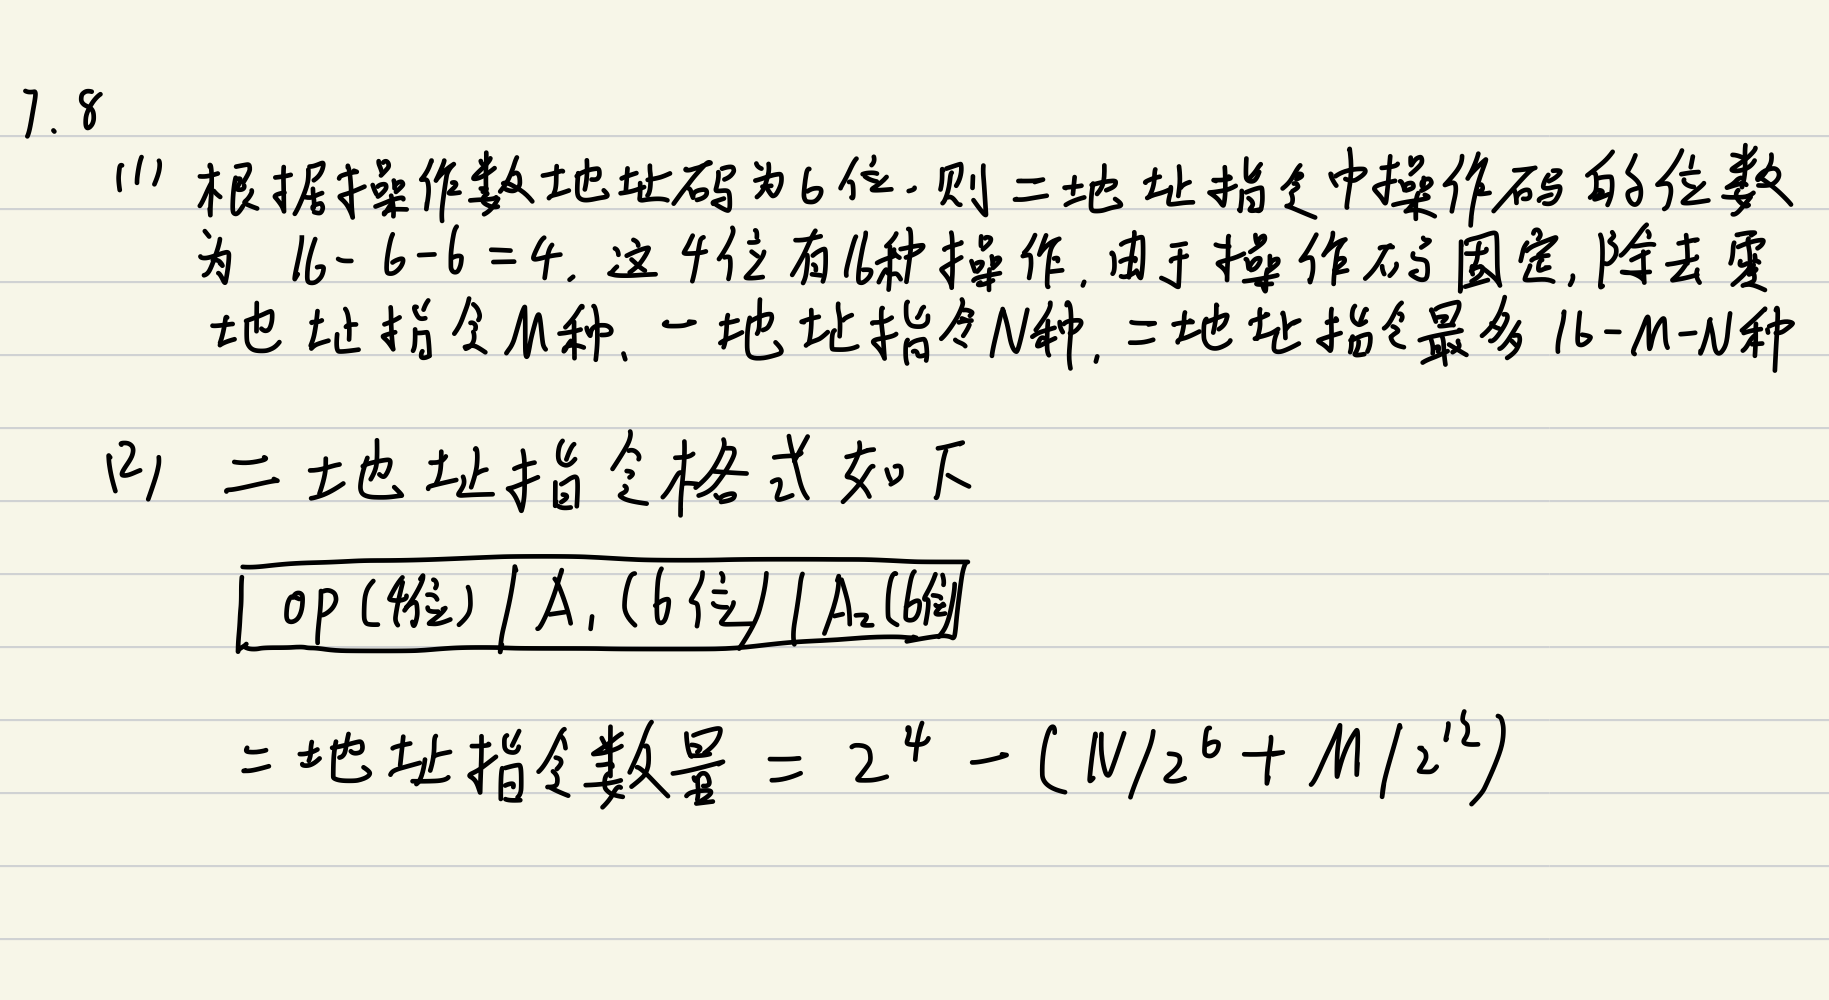 7.8
(1) 根据操作数地址码为6位.则二地址指令中操作码的位数
为 16-6-6=4. 这4位有16种操作,由于操作码固定,除去零
地址指令M种、一地址指令N种,二地址指令最多16-M-N种
(2) 二地址指令格式如下
OP(4位) | A₁(6位) | A₂(6位)
二地址指令数量 = 2⁴ - (N/2⁶ + M/2¹²)